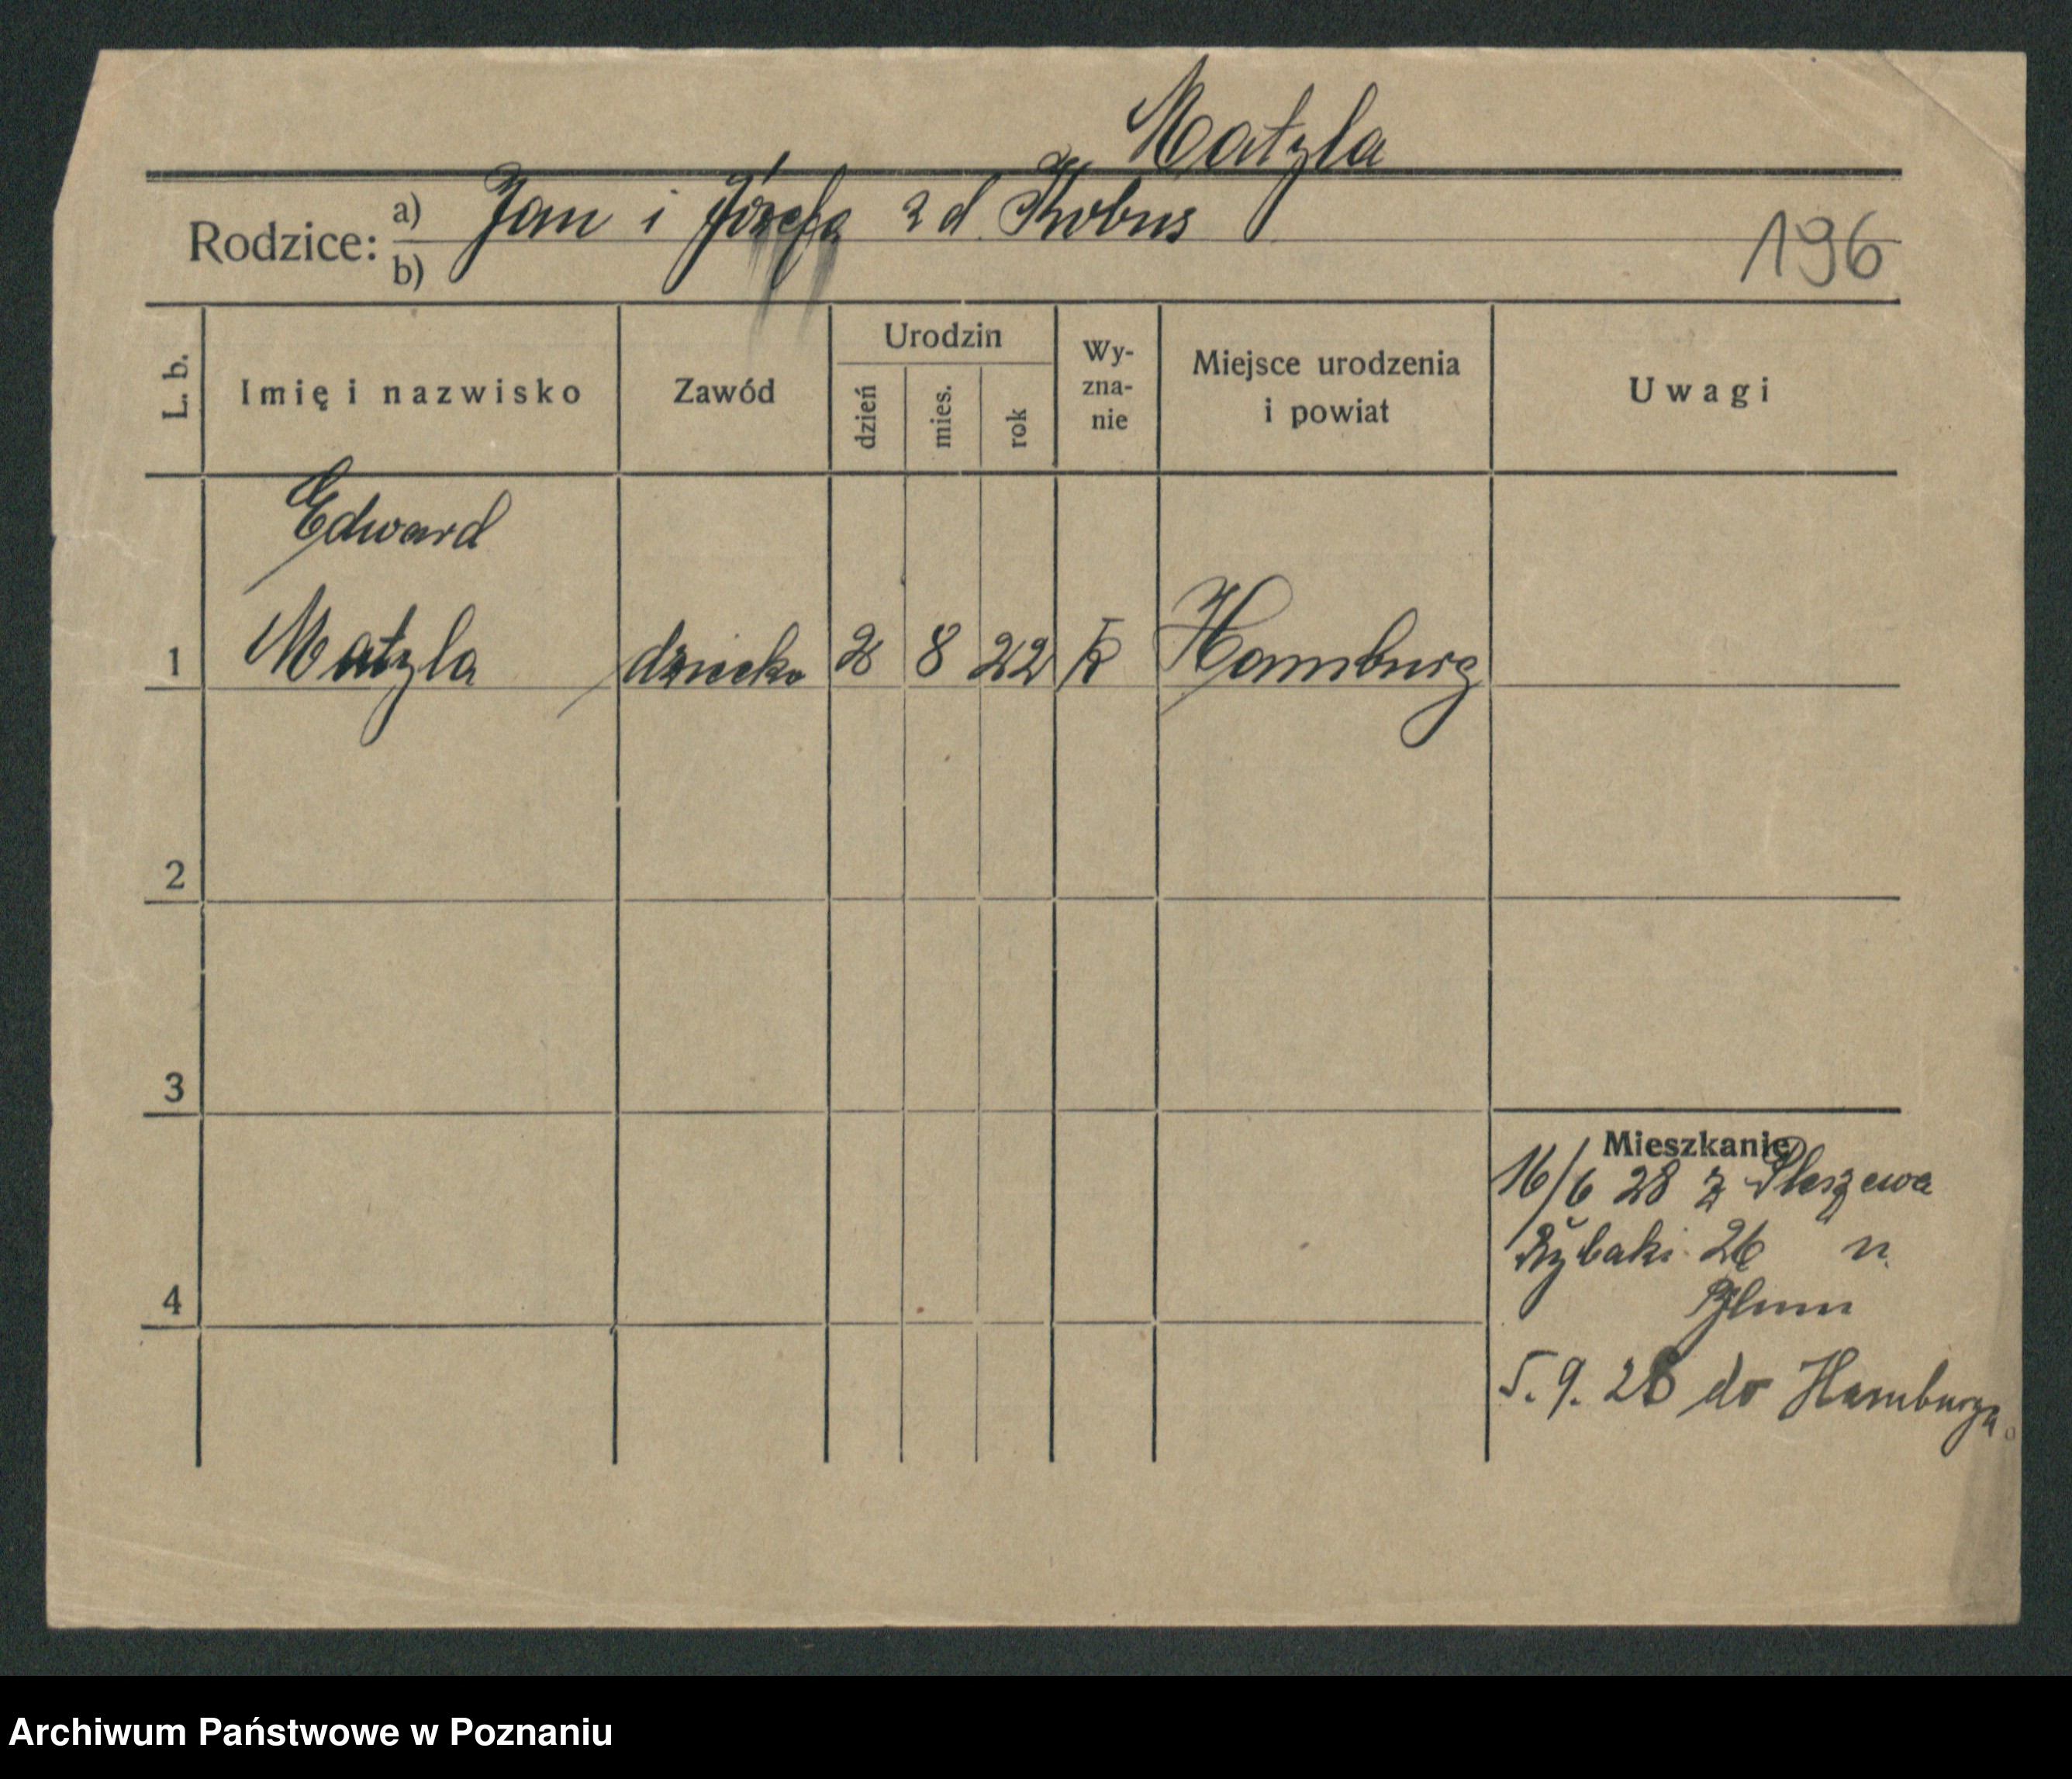 Matyla
Rodzice: a) Jan i Józefa z d. Kobus
b)
196
L. b. Imię i nazwisko Zawód Urodzin dzień mies. rok Wyzna-nie Miejsce urodzenia i powiat Uwagi
Edward
1 Matyla dziecko 2 8 22 k Hamburg
2
3
Mieszkanie
16/6 28 z Pleszewa
Rybaki 26 u
4
Blum
5. 9. 28 do Hamburga.
Archiwum Państwowe w Poznaniu